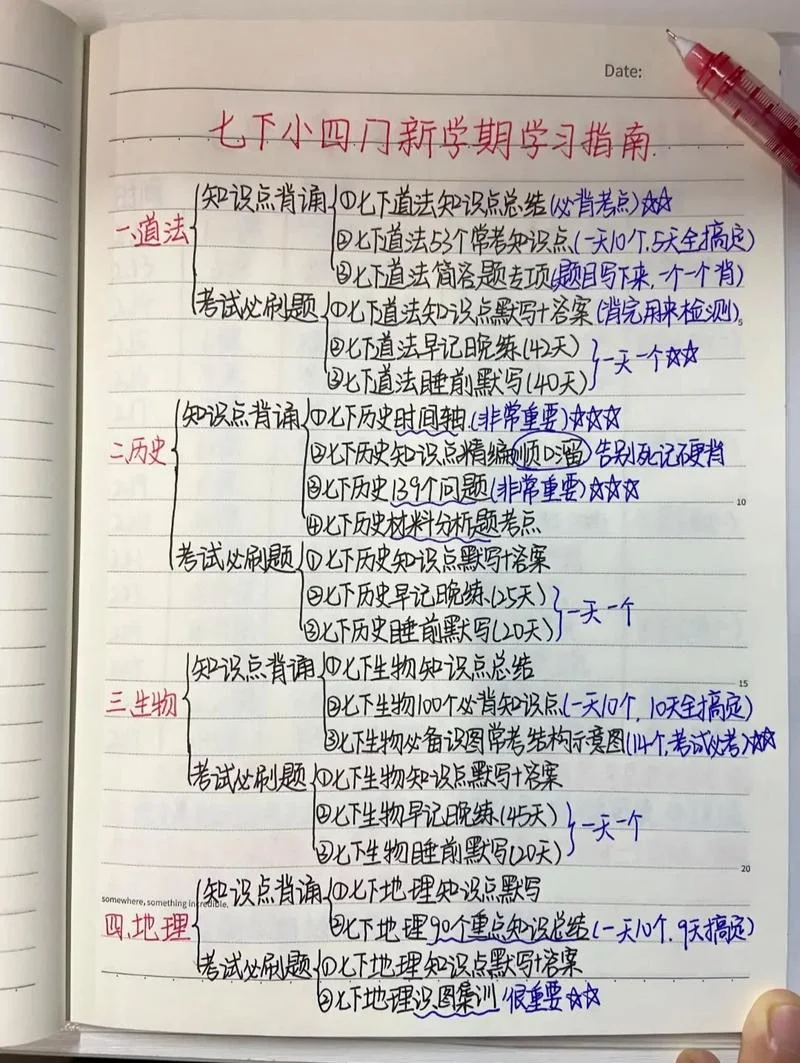 Date:
七下小四门新学期学习指南
一.道法
知识点背诵
①七下道法知识点总结(必背考点)☆☆
②七下道法53个常考知识点(一天10个,5天全搞定)
③七下道法简答题专项(题目写下来,一个一个背)
考试必刷题
①七下道法知识点默写+答案(背完用来检测)
5
②七下道法早记晚练(42天)
③七下道法睡前默写(40天)
一天一个☆☆
二.历史
知识点背诵
①七下历史时间轴(非常重要)☆☆☆
②七下历史知识点精编顺口溜 告别死记硬背
③七下历史139个问题(非常重要)☆☆☆
10
④七下历史材料分析题考点
考试必刷题
①七下历史知识点默写+答案
②七下历史早记晚练(25天)
③七下历史睡前默写(20天)
一天一个
三.生物
知识点背诵
①七下生物知识点总结
15
②七下生物100个必背知识点(一天10个,10天全搞定)
③七下生物必备识图常考结构示意图(14个,考试必考)☆☆
考试必刷题
①七下生物知识点默写+答案
②七下生物早记晚练(45天)
③七下生物睡前默写(20天)
一天一个
20
somewhere, something incredible.
四.地理
知识点背诵
①七下地理知识点默写
②七下地理90个重点知识总结(一天10个,9天搞定)
考试必刷题
①七下地理知识点默写+答案
②七下地理识图集训 很重要☆☆